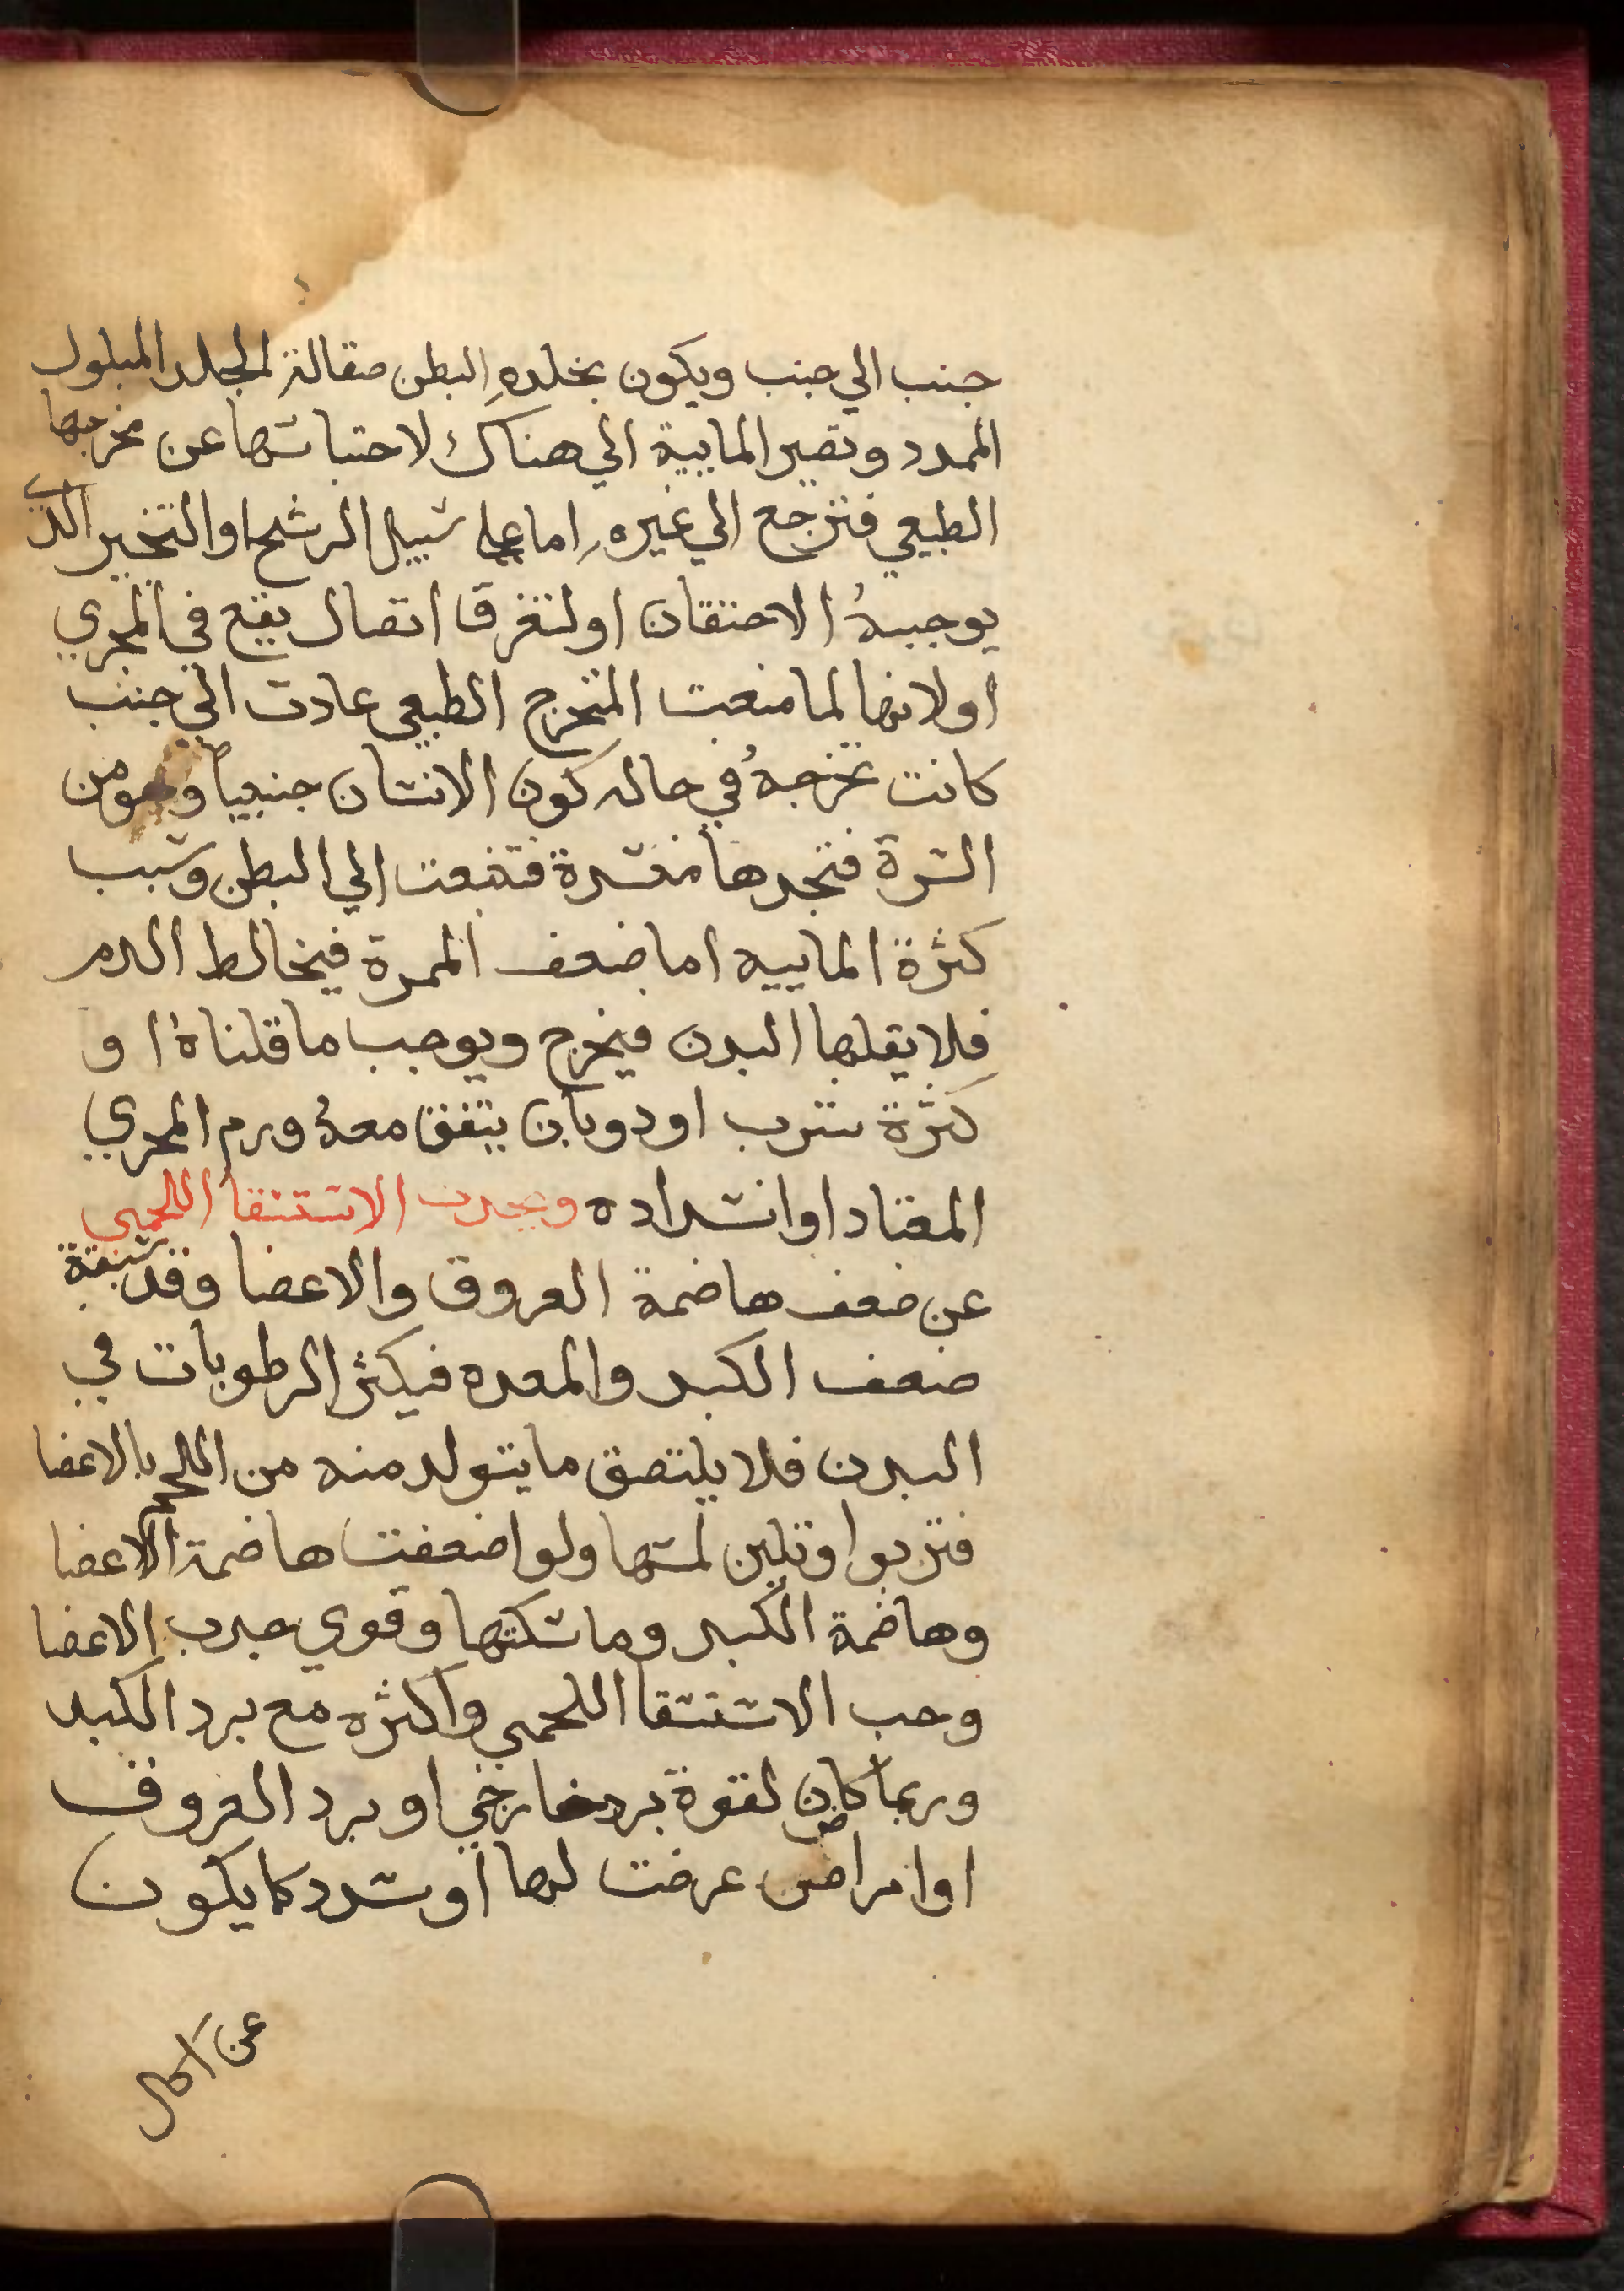 جنب الي جنب ويكون بخلده البطن صقالة لجلد المبلول
الممدد وتصير المايية الي هناك لاحتباسها عن مخرجها
الطبيعي فترجع الي غيره اما علي سبيل الرشح او التبخير الذي
يوجبهُ الاحتقان او لتفرق اتصال يقع في المجري
او لانها لما منعت المخرج الطبيعي عادت الي جنب
كانت تخرجهُ في حاله كون الانسان جنيياً وهو من
السرة فتجدها منسدة فتنبعت الي البطن وسبب
كثرة الماييه اما ضعف الممرة فيخالط الدم
فلا يقلبها البدن فيخرج ويوجب ما قلناهُ او
كثرة شرب او دوبان يتفق معهُ ورم المجري
المعتاد او انسداده ويحدث الاستسقا اللحمي
عن ضعف هاضمة العروق والاعضا وقد سبقة
ضعف الكبد والمعده فيكثر الرطوبات في
البدن فلا يلتصق ما يتولد منه من اللحم بالاعضا
فتربوا وتلين لمسها ولو اضعفت هاضمة الاعضا
وهاضمة الكبد وماسكتها وقوي جدب الاعضا
وجب الاستسقا اللحمي واكثره مع برد الكبد
وربما كان لقوة برد خارجي او برد العروق
او امراض عرضت لها او سدد كما يكون
عن اكل